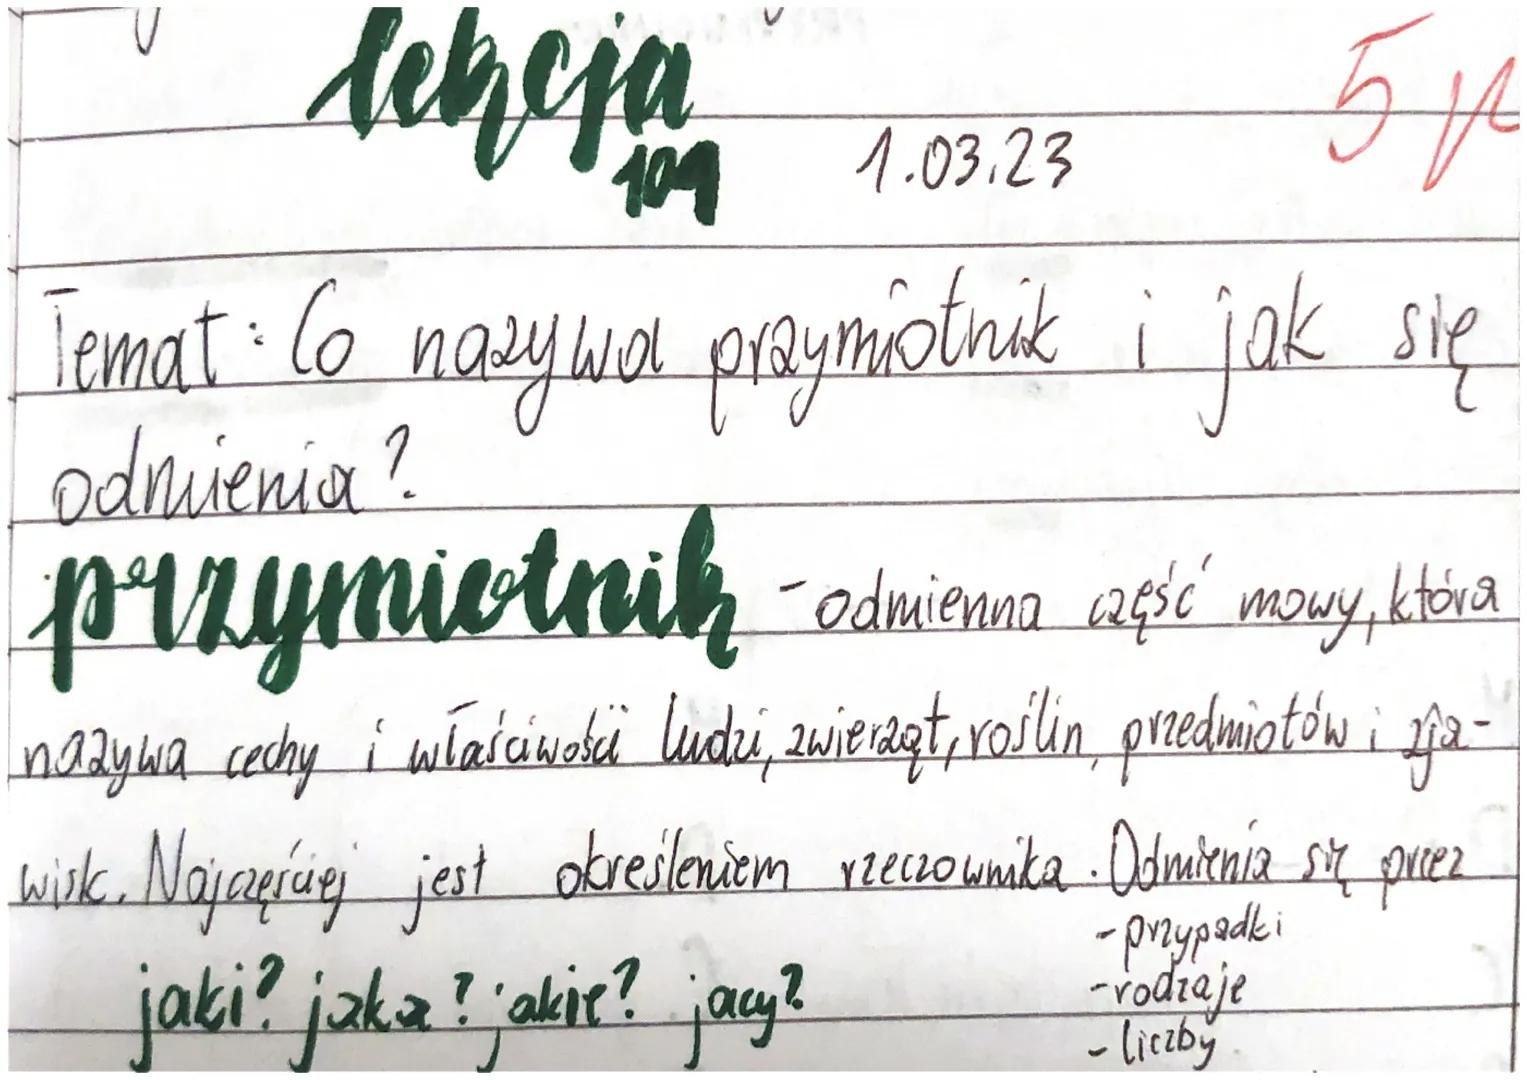 lekcja
109
1.03.23
Temat: Co nazywa przymiotnik i jak się
odmienia?
przymiotnik - odmienna część mowy, która
nazywa cechy i właściwości ludzi, zwierząt, roślin, przedmiotów i zja-
wisk. Najczęściej jest określeniem rzeczownika. Odmienia się przez
- przypadki
- rodzaje
- liczby
jaki? jaka? jakie? jacy?